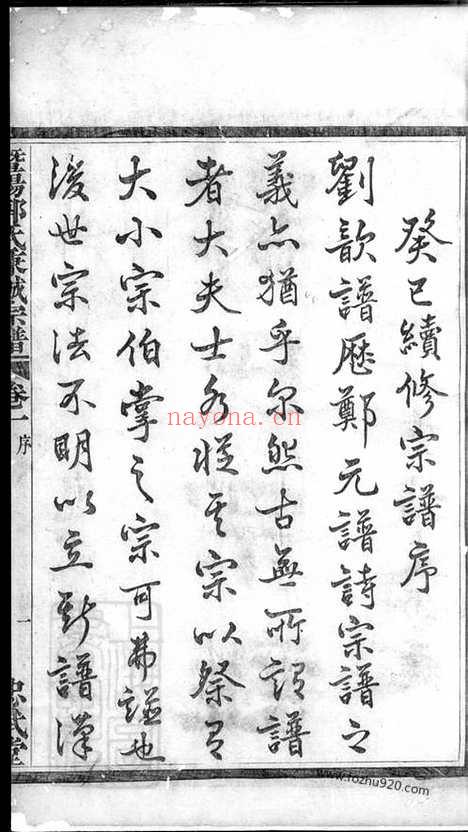 癸巳續修宗譜序
劉歆譜歷鄭元譜詩宗譜之
義亦猶乎尔然古無所謂譜
者大夫士各從其宗以祭有
大小宗伯掌之宗可弗謹也
後世宗法不明以立斯譜漢
宗譜
卷一
序
一
nayona.cn
www.fozhu920.com